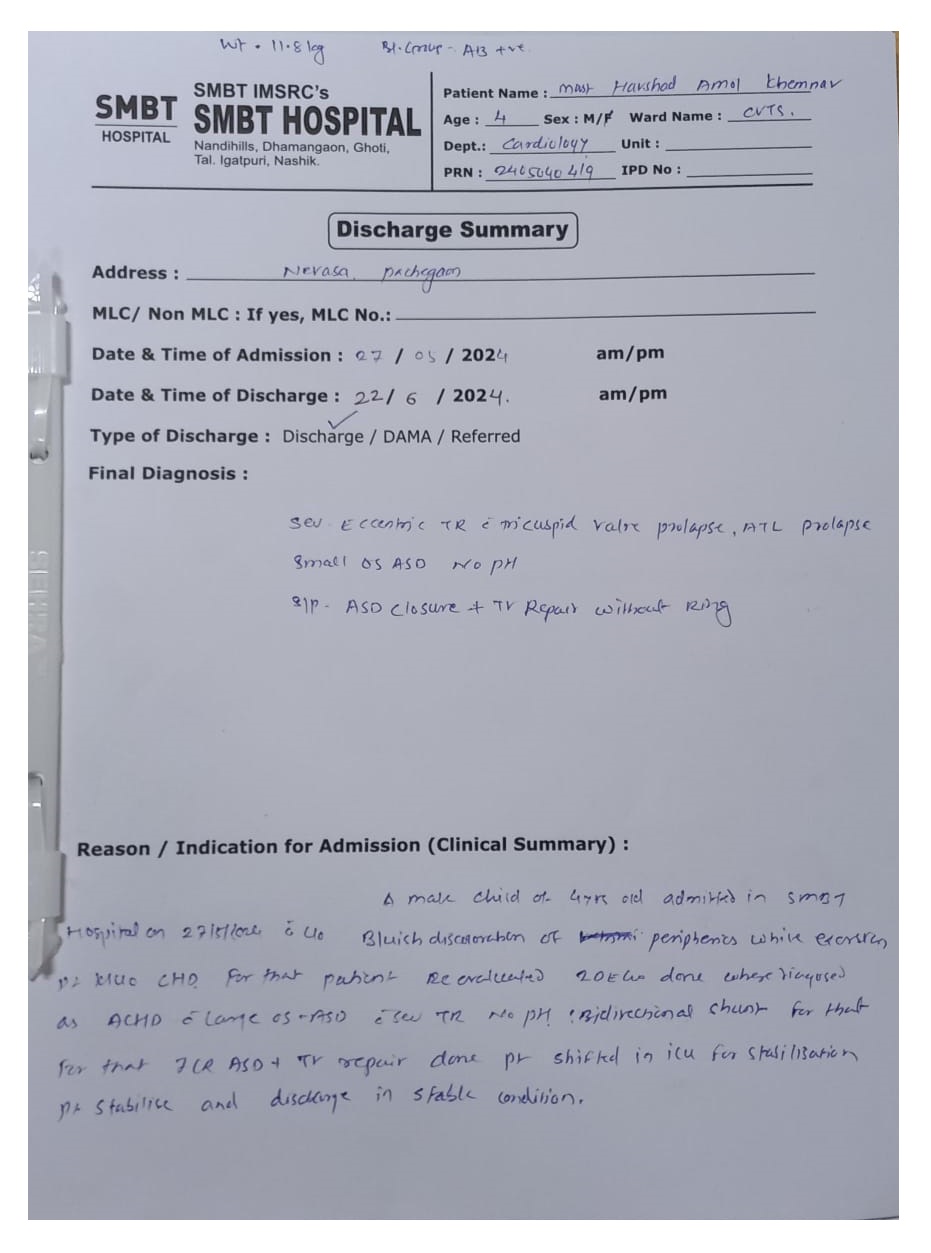 Wt. 11.8 kg Bl. Group - AB +ve.
SMBT
HOSPITAL
SMBT IMSRC's
SMBT HOSPITAL
Nandihills, Dhamangaon, Ghoti,
Tal. Igatpuri, Nashik.
Patient Name : Mast Harshad Amol Khemnar
Age : 4 Sex : M/F Ward Name : CVTS.
Dept.: Cardiology Unit :
PRN : 2405040419 IPD No :
Discharge Summary
Address : Nevasa. pachegaon
MLC/ Non MLC : If yes, MLC No.:
Date & Time of Admission : 27 / 05 / 2024 am/pm
Date & Time of Discharge : 22/ 6 / 2024. am/pm
Type of Discharge : Discharge / DAMA / Referred
Final Diagnosis :
Sev. Eccentric TR c̄ tricuspid valve prolapse, ATL prolapse
Small OS ASD No PH
S/P - ASD closure + TV Repair without Ring
Reason / Indication for Admission (Clinical Summary) :
A male child of 4yrs old admitted in SMBT
Hospital on 27/5/2024 c̄ c/o Bluish discoloration of peripheries while exersion
pt k/c/o CHD. For that patient Re evaluated 2DEcho done where diagnosed
as ACHD c̄ Large OS-ASD c̄ sev TR No PH. Bidirectional shunt for that
For that ICR ASD + TV repair done pt shifted in icu for stabilisation
pt stabilise and discharge in stable condition.